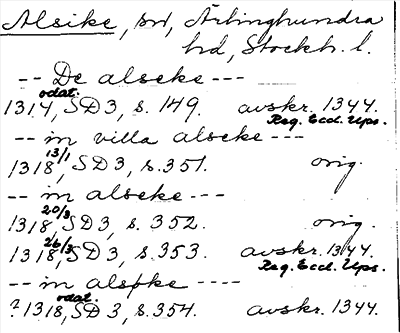 Alsike, sn, Ärlinghundra
hd, Stockh. l.
-- De alseke ---
odat.
1314, SD 3, s. 149. avskr. 1344.
Reg. Eccl. Ups.
-- in villa alseke ---
1318 13/1, SD 3, s. 351. orig.
-- in alseke ---
1318 20/3, SD 3, s. 352. orig.
1318 26/3, SD 3, s. 353. avskr. 1344.
Reg. Eccl. Ups.
-- in alsøke ----
odat.
? 1318, SD 3, s. 354. avskr. 1344.